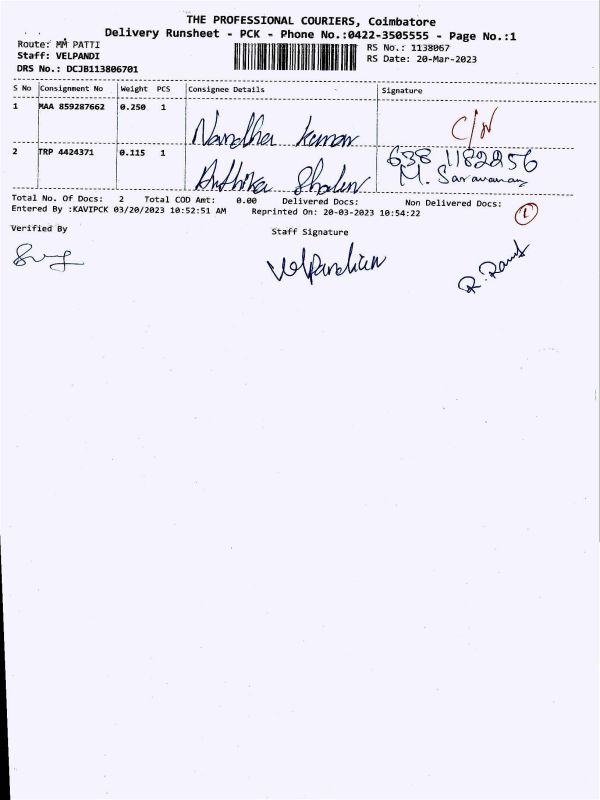 THE PROFESSIONAL COURIERS, Coimbatore
Delivery Runsheet - PCK - Phone No.:0422-3505555 - Page No.:1
Route: MM PATTI
RS No.: 1138067
Staff: VELPANDI
RS Date: 20-Mar-2023
DRS No.: DCJB113806701
S No Consignment No Weight PCS Consignee Details Signature
1 MAA 859287662 0.250 1 Nandha kumar C/N
2 TRP 4424371 0.115 1 638 1182256
M. Saravanan
Total No. Of Docs: 2 Total COD Amt: 0.00 Delivered Docs: Non Delivered Docs: 1
Entered By :KAVIPCK 03/20/2023 10:52:51 AM Reprinted On: 20-03-2023 10:54:22
Verified By
Staff Signature
Velpandian